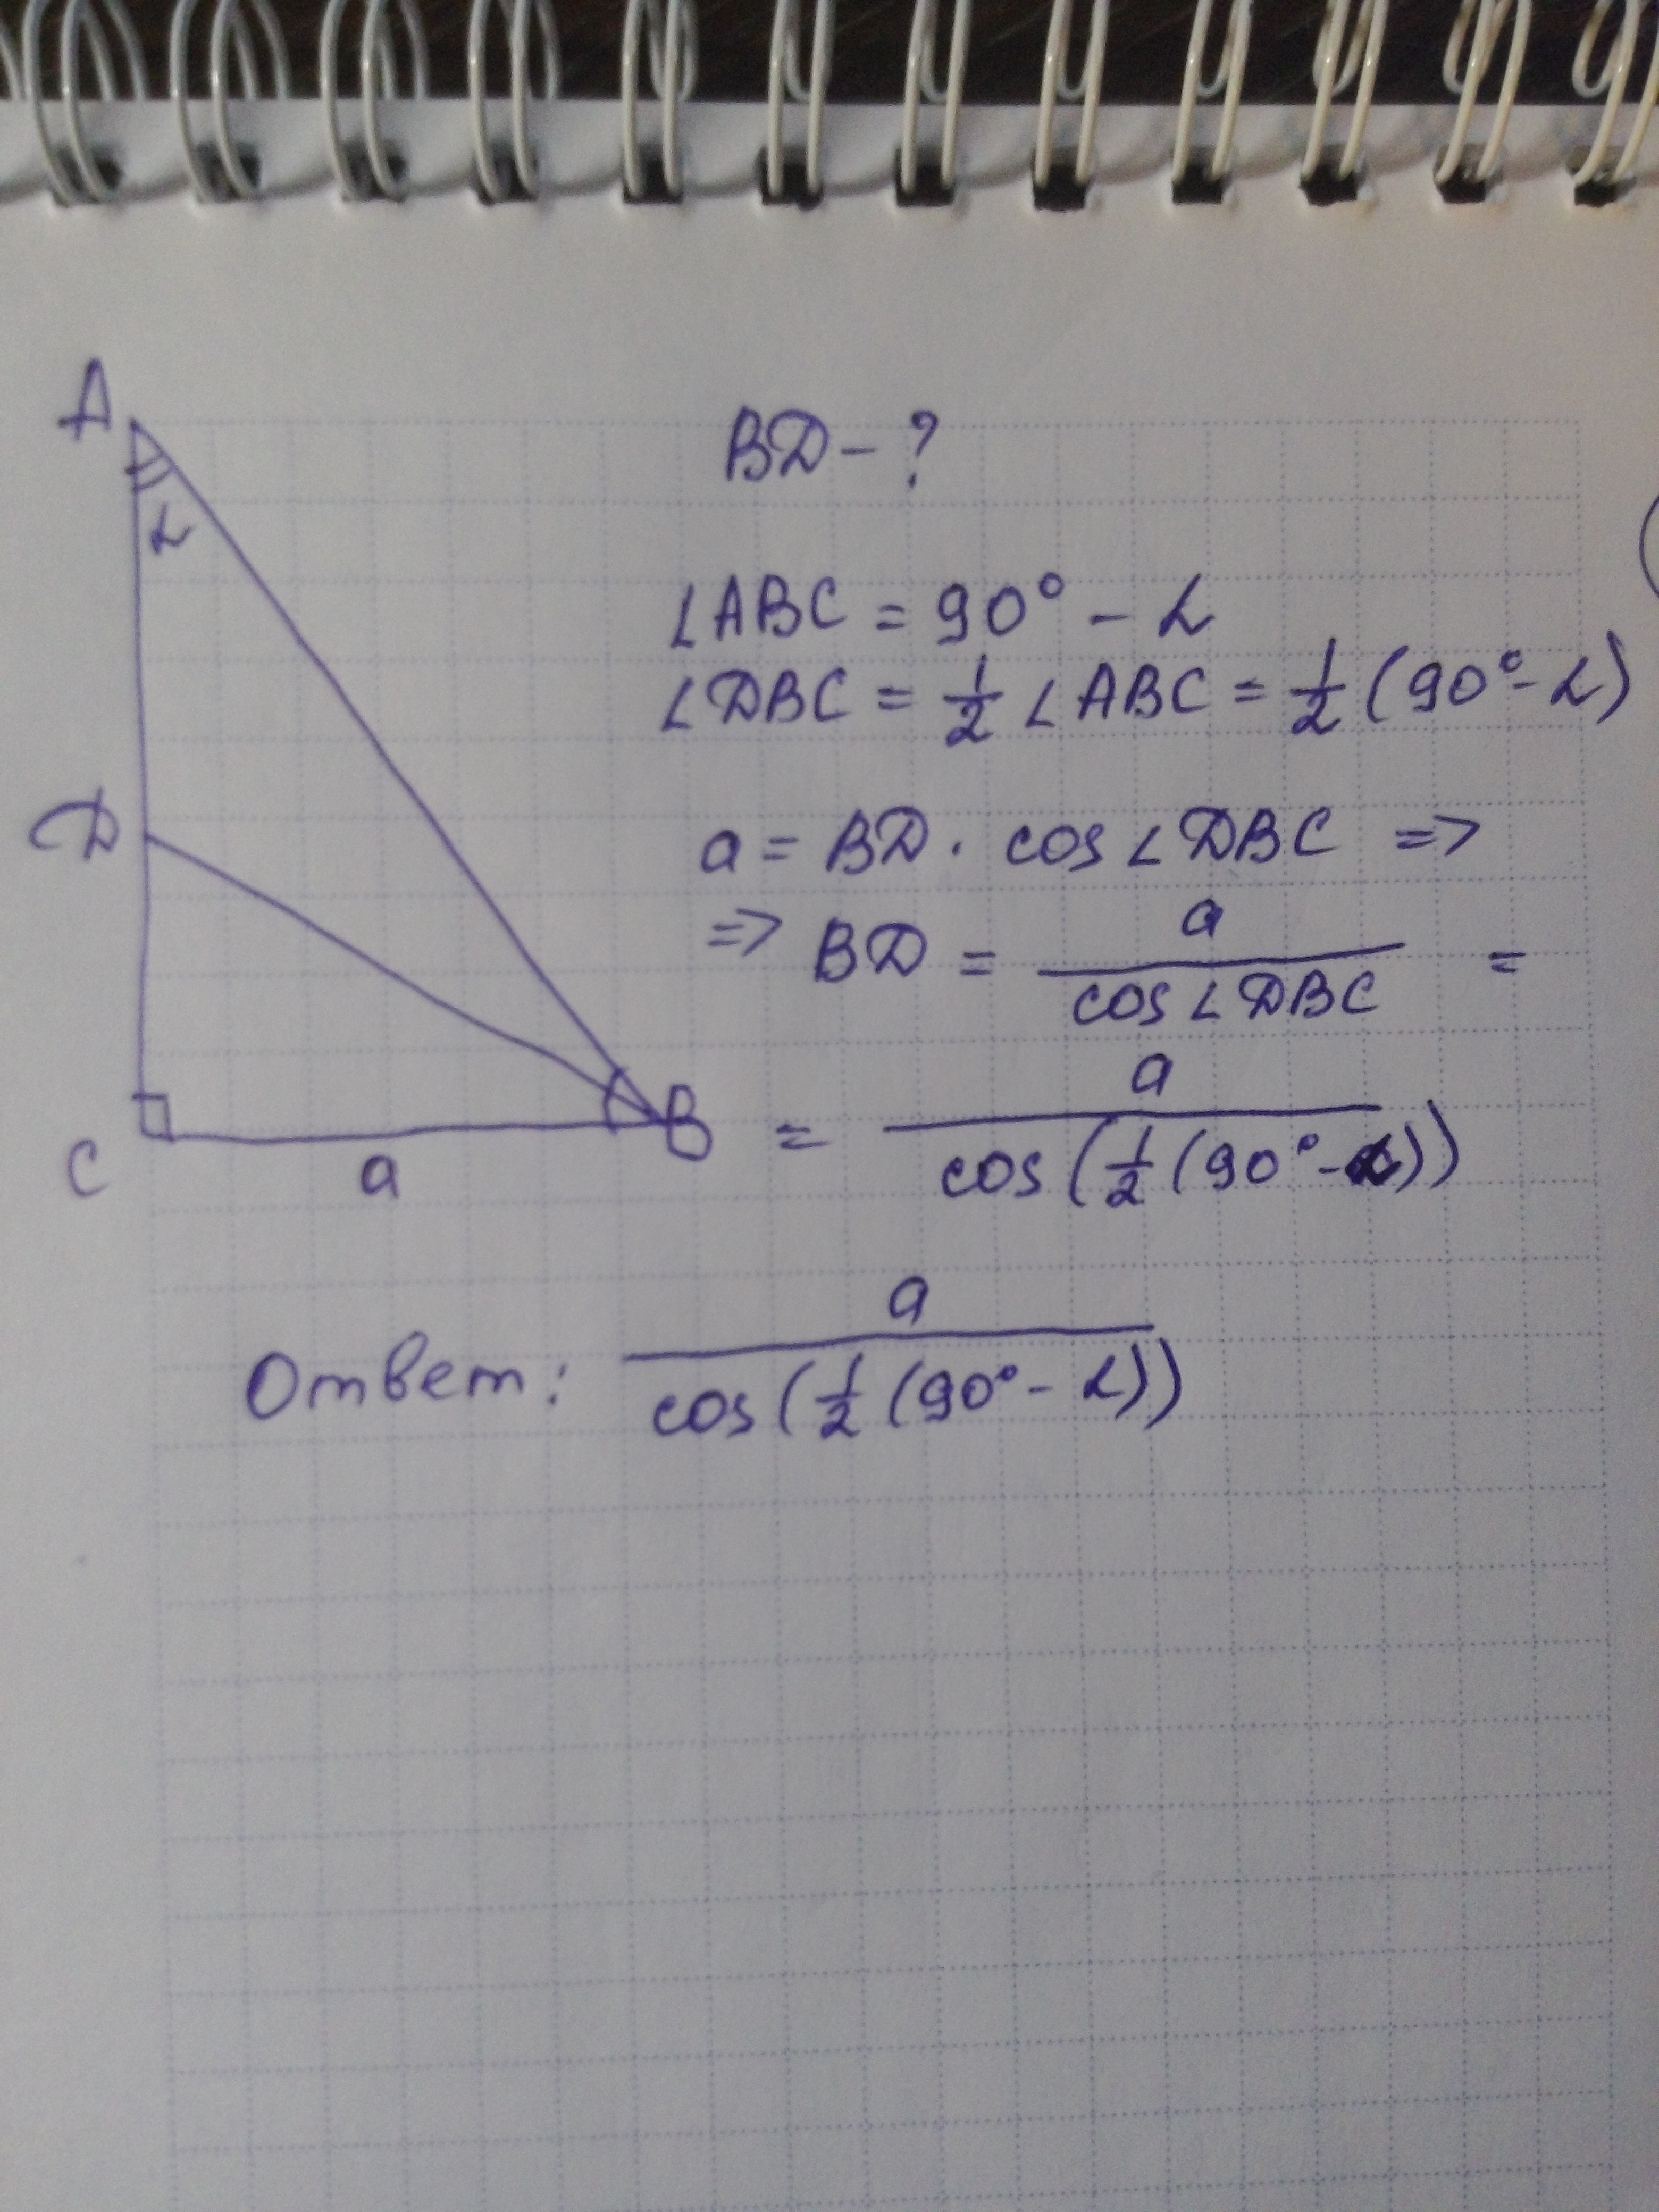 A
BD - ?
α
∠ABC = 90° - α
∠DBC = 1/2 ∠ABC = 1/2 (90° - α)
D
a = BD · cos ∠DBC =>
=> BD = a / cos ∠DBC =
B
= a / cos (1/2 (90° - α))
C
a
Ответ: a / cos (1/2 (90° - α))